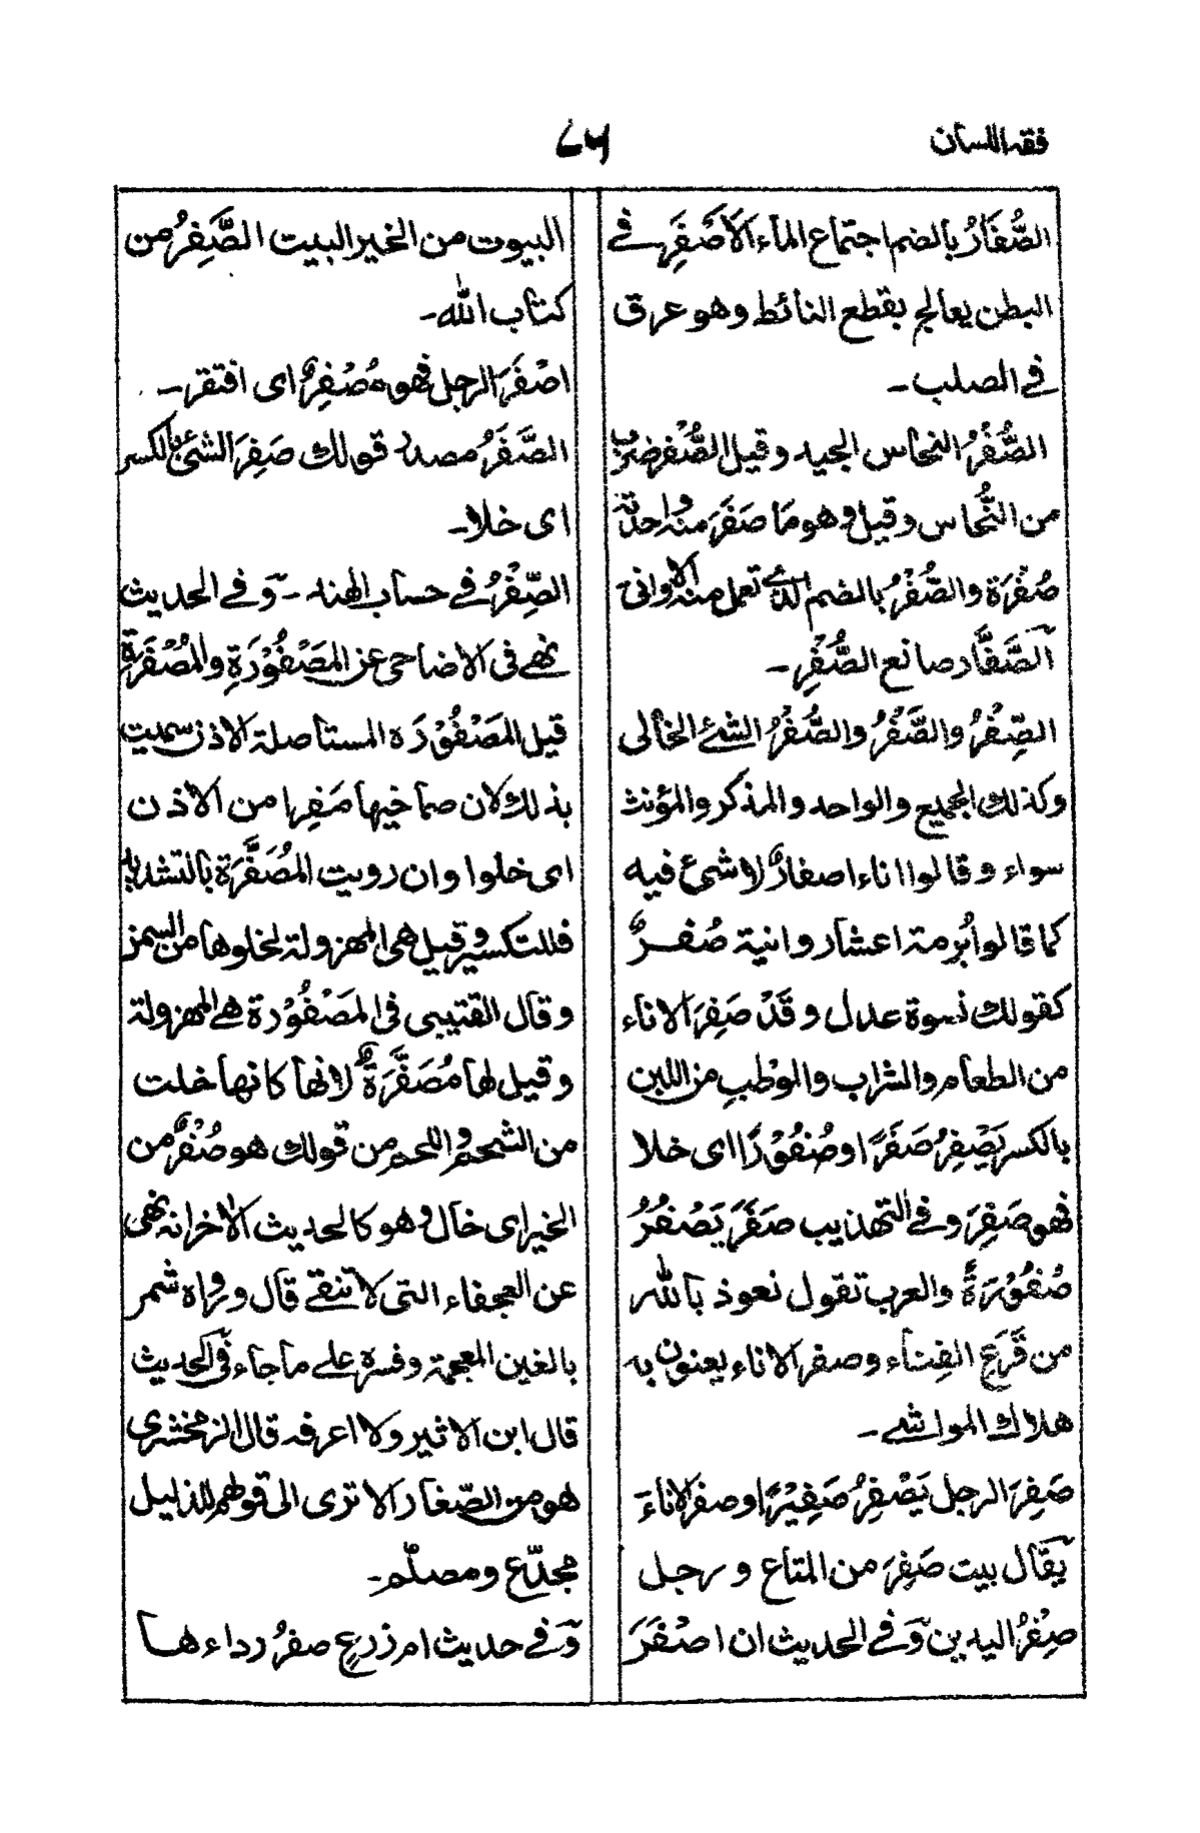 فقه اللسان
الصُّفَارُ بالضم اجتماع الماء الأَصْفَرِ في
البطن يعالج بقطع النائط وهو عرق
في الصلب۔
الصُّفْرُ النحاس الجيد وقيل الصُّفر ضرب
من النُّحاس وقيل هو ما صَفَرَ منه واحدته
صُفْرَة والصُّفْرُ بالضم الذي تعمل منه الاوانى
الصَّفَّار صانع الصُّفْرِ۔
الصِّفْرُ والصَّفْرُ والصُّفْرُ الشئ الخالى
وكذلك الجميع والواحد والمذكر والمؤنث
سواء وقالوا اناء اصفارٌ لا شئ فيه
كما قالوا بُرمة اعشار وانية صُفـرٌ
كقولك نسوة عدل وقَدْ صَفِرَ الاناء
من الطعام والشراب والوَطْبِ من اللبن
بالكسر يَصْفِرُ صَفَرًا وصُفُوْرًا اى خلا
فهو صَفِرَ وفي التهذيب صَفَرَ يَصْفُرُ
صُفُوْرَةً والعرب تقول نعوذ بالله
من قَرَعِ الفِناء وصفر الاناء يعنون به
هلاك المواشي۔
صَفِرَ الرجل يَصْفِرُ صَفِيْرًا وصفر الاناءَ
يقال بيت صَفِرَ من المتاع ورجل
صِفْرُ اليدين وَفي الحديث ان اصْفَرَ
البيوت من الخير البيت الصَّفِرُ من
كتاب الله۔
اصْفَرَ الرجل فهو مُصْفِرٌ اى افتقر۔
الصَّفَرُ مصدر قولك صَفِرَ الشئ بالكسر
اى خلا۔
الصِّفْرُ في حساب الهند۔ وَفي الحديث
نهي فى الاضاحى عن المَصْفُوْرَةِ والمُصْفَرَةِ
قيل المَصْفُوْرَه المستاصلة الاذن سميت
بذلك لان صماخيها صَفِرا من الاذن
اى خلوا وان رويت المُصَفَّرَة بالتشديد
فللتكسير وقيل هى المهزولة لخلوها من السمن
وقال القتيبى فى المَصْفُوْرة هي المهزولة
وقيل لها مُصَفَّرَةٌ لانها كانها خلت
من الشحم واللحم من قولك هو صُفْرٌ من
الخير اى خال وهو كالحديث الاخر انه نهى
عن العجفاء التى لا تنقي قال ورواه شمر
بالغين المعجمة وفسره علي ما جاء فى الحديث
قال ابن الاثير ولا اعرفه قال الزمخشرى
هو من الصّغار الا ترى الى قولهم للذليل
مجدّع ومصلّم۔
وَفي حديث ام زرع صفرُ رداءها